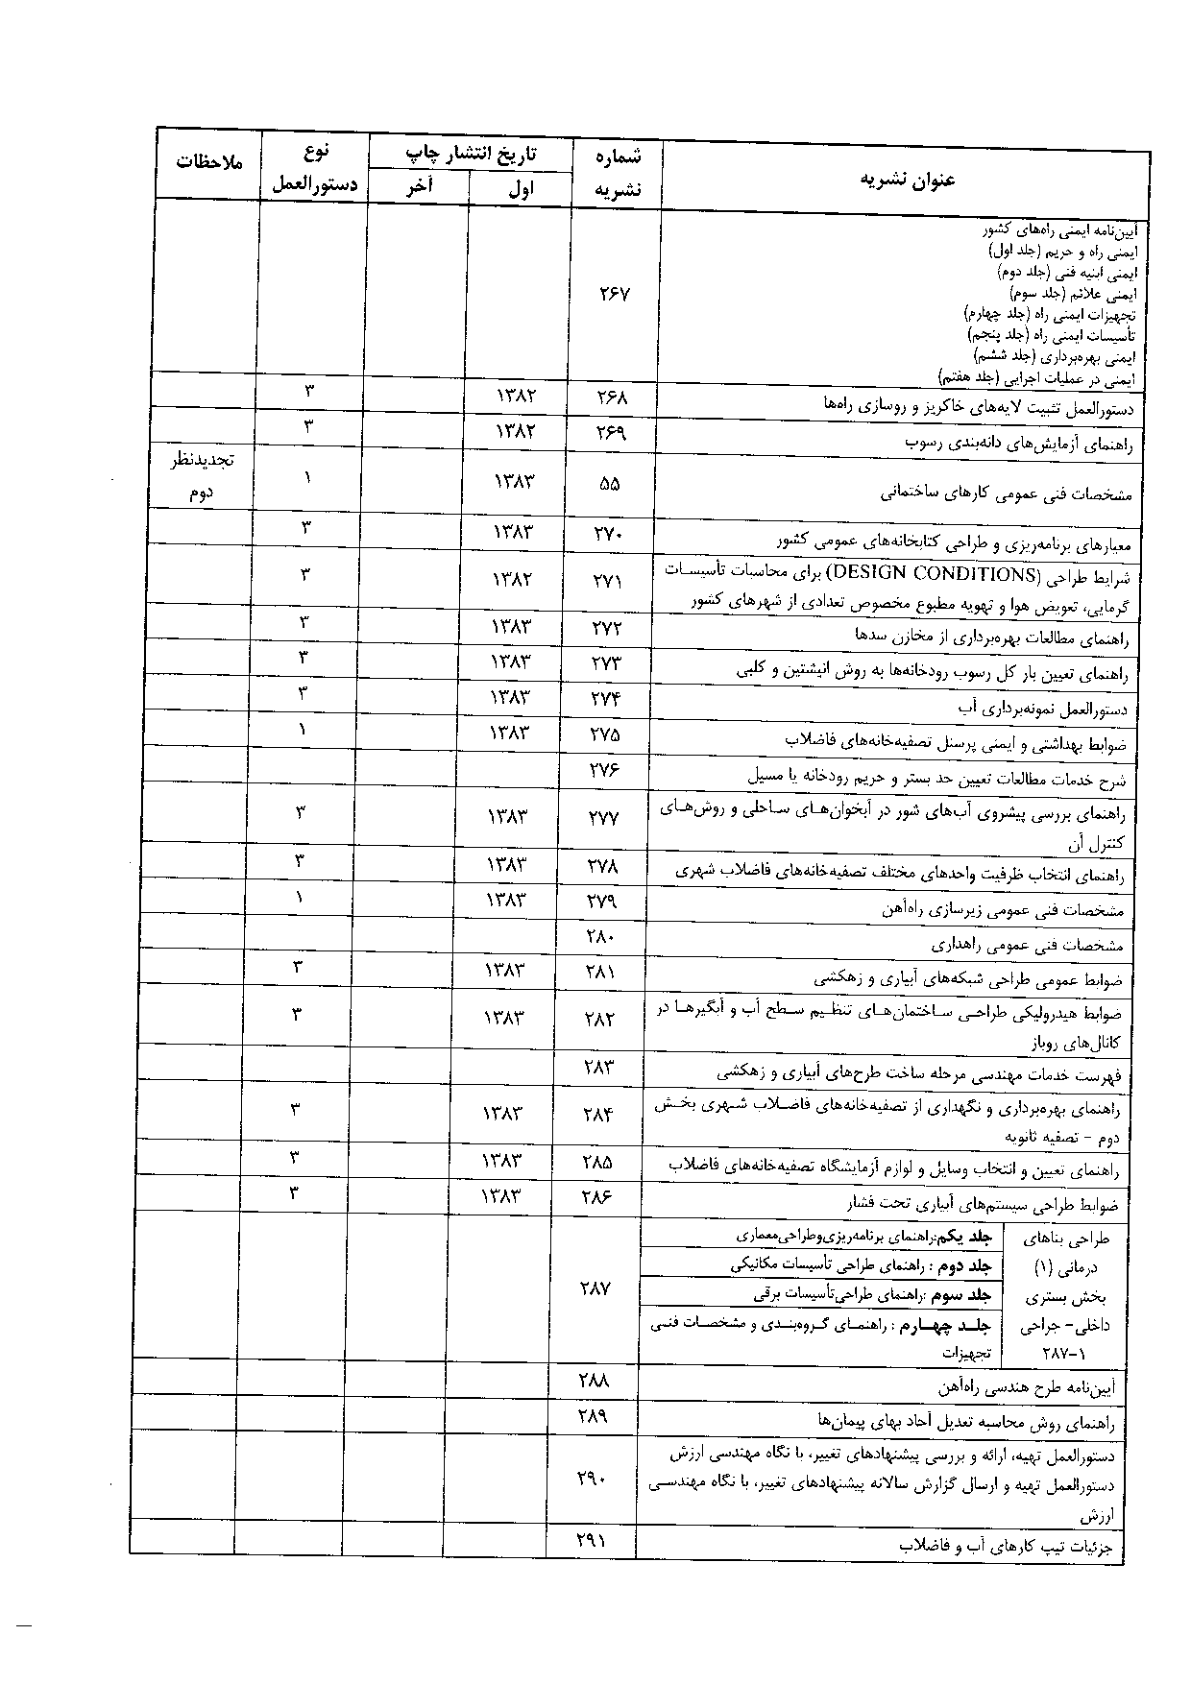 عنوان نشریه شماره نشریه تاریخ انتشار چاپ نوع دستورالعمل ملاحظات
اول آخر
آیین‌نامه ایمنی راه‌های کشور
ایمنی راه و حریم (جلد اول)
ایمنی ابنیه فنی (جلد دوم)
ایمنی علائم (جلد سوم)
۲۶۷
تجهیزات ایمنی راه (جلد چهارم)
تأسیسات ایمنی راه (جلد پنجم)
ایمنی بهره‌برداری (جلد ششم)
ایمنی در عملیات اجرایی (جلد هفتم)
دستورالعمل تثبیت لایه‌های خاکریز و روسازی راه‌ها ۲۶۸ ۱۳۸۲ ۳
راهنمای آزمایش‌های دانه‌بندی رسوب ۲۶۹ ۱۳۸۲ ۳
مشخصات فنی عمومی کارهای ساختمانی ۵۵ ۱۳۸۳ ۱ تجدیدنظر
دوم
معیارهای برنامه‌ریزی و طراحی کتابخانه‌های عمومی کشور ۲۷۰ ۱۳۸۳ ۳
شرایط طراحی (DESIGN CONDITIONS) برای محاسبات تأسیسات ۲۷۱ ۱۳۸۲ ۳
گرمایی، تعویض هوا و تهویه مطبوع مخصوص تعدادی از شهرهای کشور
راهنمای مطالعات بهره‌برداری از مخازن سدها ۲۷۲ ۱۳۸۳ ۳
راهنمای تعیین بار کل رسوب رودخانه‌ها به روش انیشتین و کلبی ۲۷۳ ۱۳۸۳ ۳
دستورالعمل نمونه‌برداری آب ۲۷۴ ۱۳۸۳ ۳
ضوابط بهداشتی و ایمنی پرسنل تصفیه‌خانه‌های فاضلاب ۲۷۵ ۱۳۸۳ ۱
شرح خدمات مطالعات تعیین حد بستر و حریم رودخانه یا مسیل ۲۷۶
راهنمای بررسی پیشروی آب‌های شور در آبخوان‌های ساحلی و روش‌های ۲۷۷ ۱۳۸۳ ۳
کنترل آن
راهنمای انتخاب ظرفیت واحدهای مختلف تصفیه‌خانه‌های فاضلاب شهری ۲۷۸ ۱۳۸۳ ۳
مشخصات فنی عمومی زیرسازی راه‌آهن ۲۷۹ ۱۳۸۳ ۱
مشخصات فنی عمومی راهداری ۲۸۰
ضوابط عمومی طراحی شبکه‌های آبیاری و زهکشی ۲۸۱ ۱۳۸۳ ۳
ضوابط هیدرولیکی طراحی ساختمان‌های تنظیم سطح آب و آبگیرها در ۲۸۲ ۱۳۸۳ ۳
کانال‌های روباز
فهرست خدمات مهندسی مرحله ساخت طرح‌های آبیاری و زهکشی ۲۸۳
راهنمای بهره‌برداری و نگهداری از تصفیه‌خانه‌های فاضلاب شهری بخش ۲۸۴ ۱۳۸۳ ۳
دوم - تصفیه ثانویه
راهنمای تعیین و انتخاب وسایل و لوازم آزمایشگاه تصفیه‌خانه‌های فاضلاب ۲۸۵ ۱۳۸۳ ۳
ضوابط طراحی سیستم‌های آبیاری تحت فشار ۲۸۶ ۱۳۸۳ ۳
طراحی بناهای جلد یکم:راهنمای برنامه‌ریزی‌وطراحی‌معماری
درمانی (۱) جلد دوم : راهنمای طراحی تأسیسات مکانیکی
بخش بستری جلد سوم :راهنمای طراحی‌تأسیسات برقی ۲۸۷
داخلی- جراحی جلد چهارم : راهنمای گروه‌بندی و مشخصات فنی
۲۸۷-۱ تجهیزات
آیین‌نامه طرح هندسی راه‌آهن ۲۸۸
راهنمای روش محاسبه تعدیل آحاد بهای پیمان‌ها ۲۸۹
دستورالعمل تهیه، ارائه و بررسی پیشنهادهای تغییر، با نگاه مهندسی ارزش
دستورالعمل تهیه و ارسال گزارش سالانه پیشنهادهای تغییر، با نگاه مهندسی ۲۹۰
ارزش
جزئیات تیپ کارهای آب و فاضلاب ۲۹۱